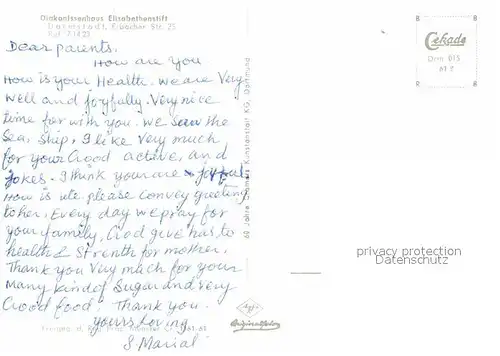 Diakonissenhaus Elisabethenstift
Darmstadt, Erbacher Str. 25
Ruf 71423
Dear parents.
How are you
How is your Health. we are Very
well and joyfully. Very nice
time for with you. we saw the
Sea, Ship, I like Very much
for your Good active, and
jokes. I think your are
How is ute please convey greeting
to her, Every day we pray for
your family, God give has to
health & Strenth for mother.
Thank you Very much for your
Many kind of Sugar and very
Good food. Thank you.
yours Loving
S. Marial
60 Jahre Cramers Kunstanstalt KG, Dortmund
Cekade
Drm 015
privacy protection
Datenschutz
Agfa